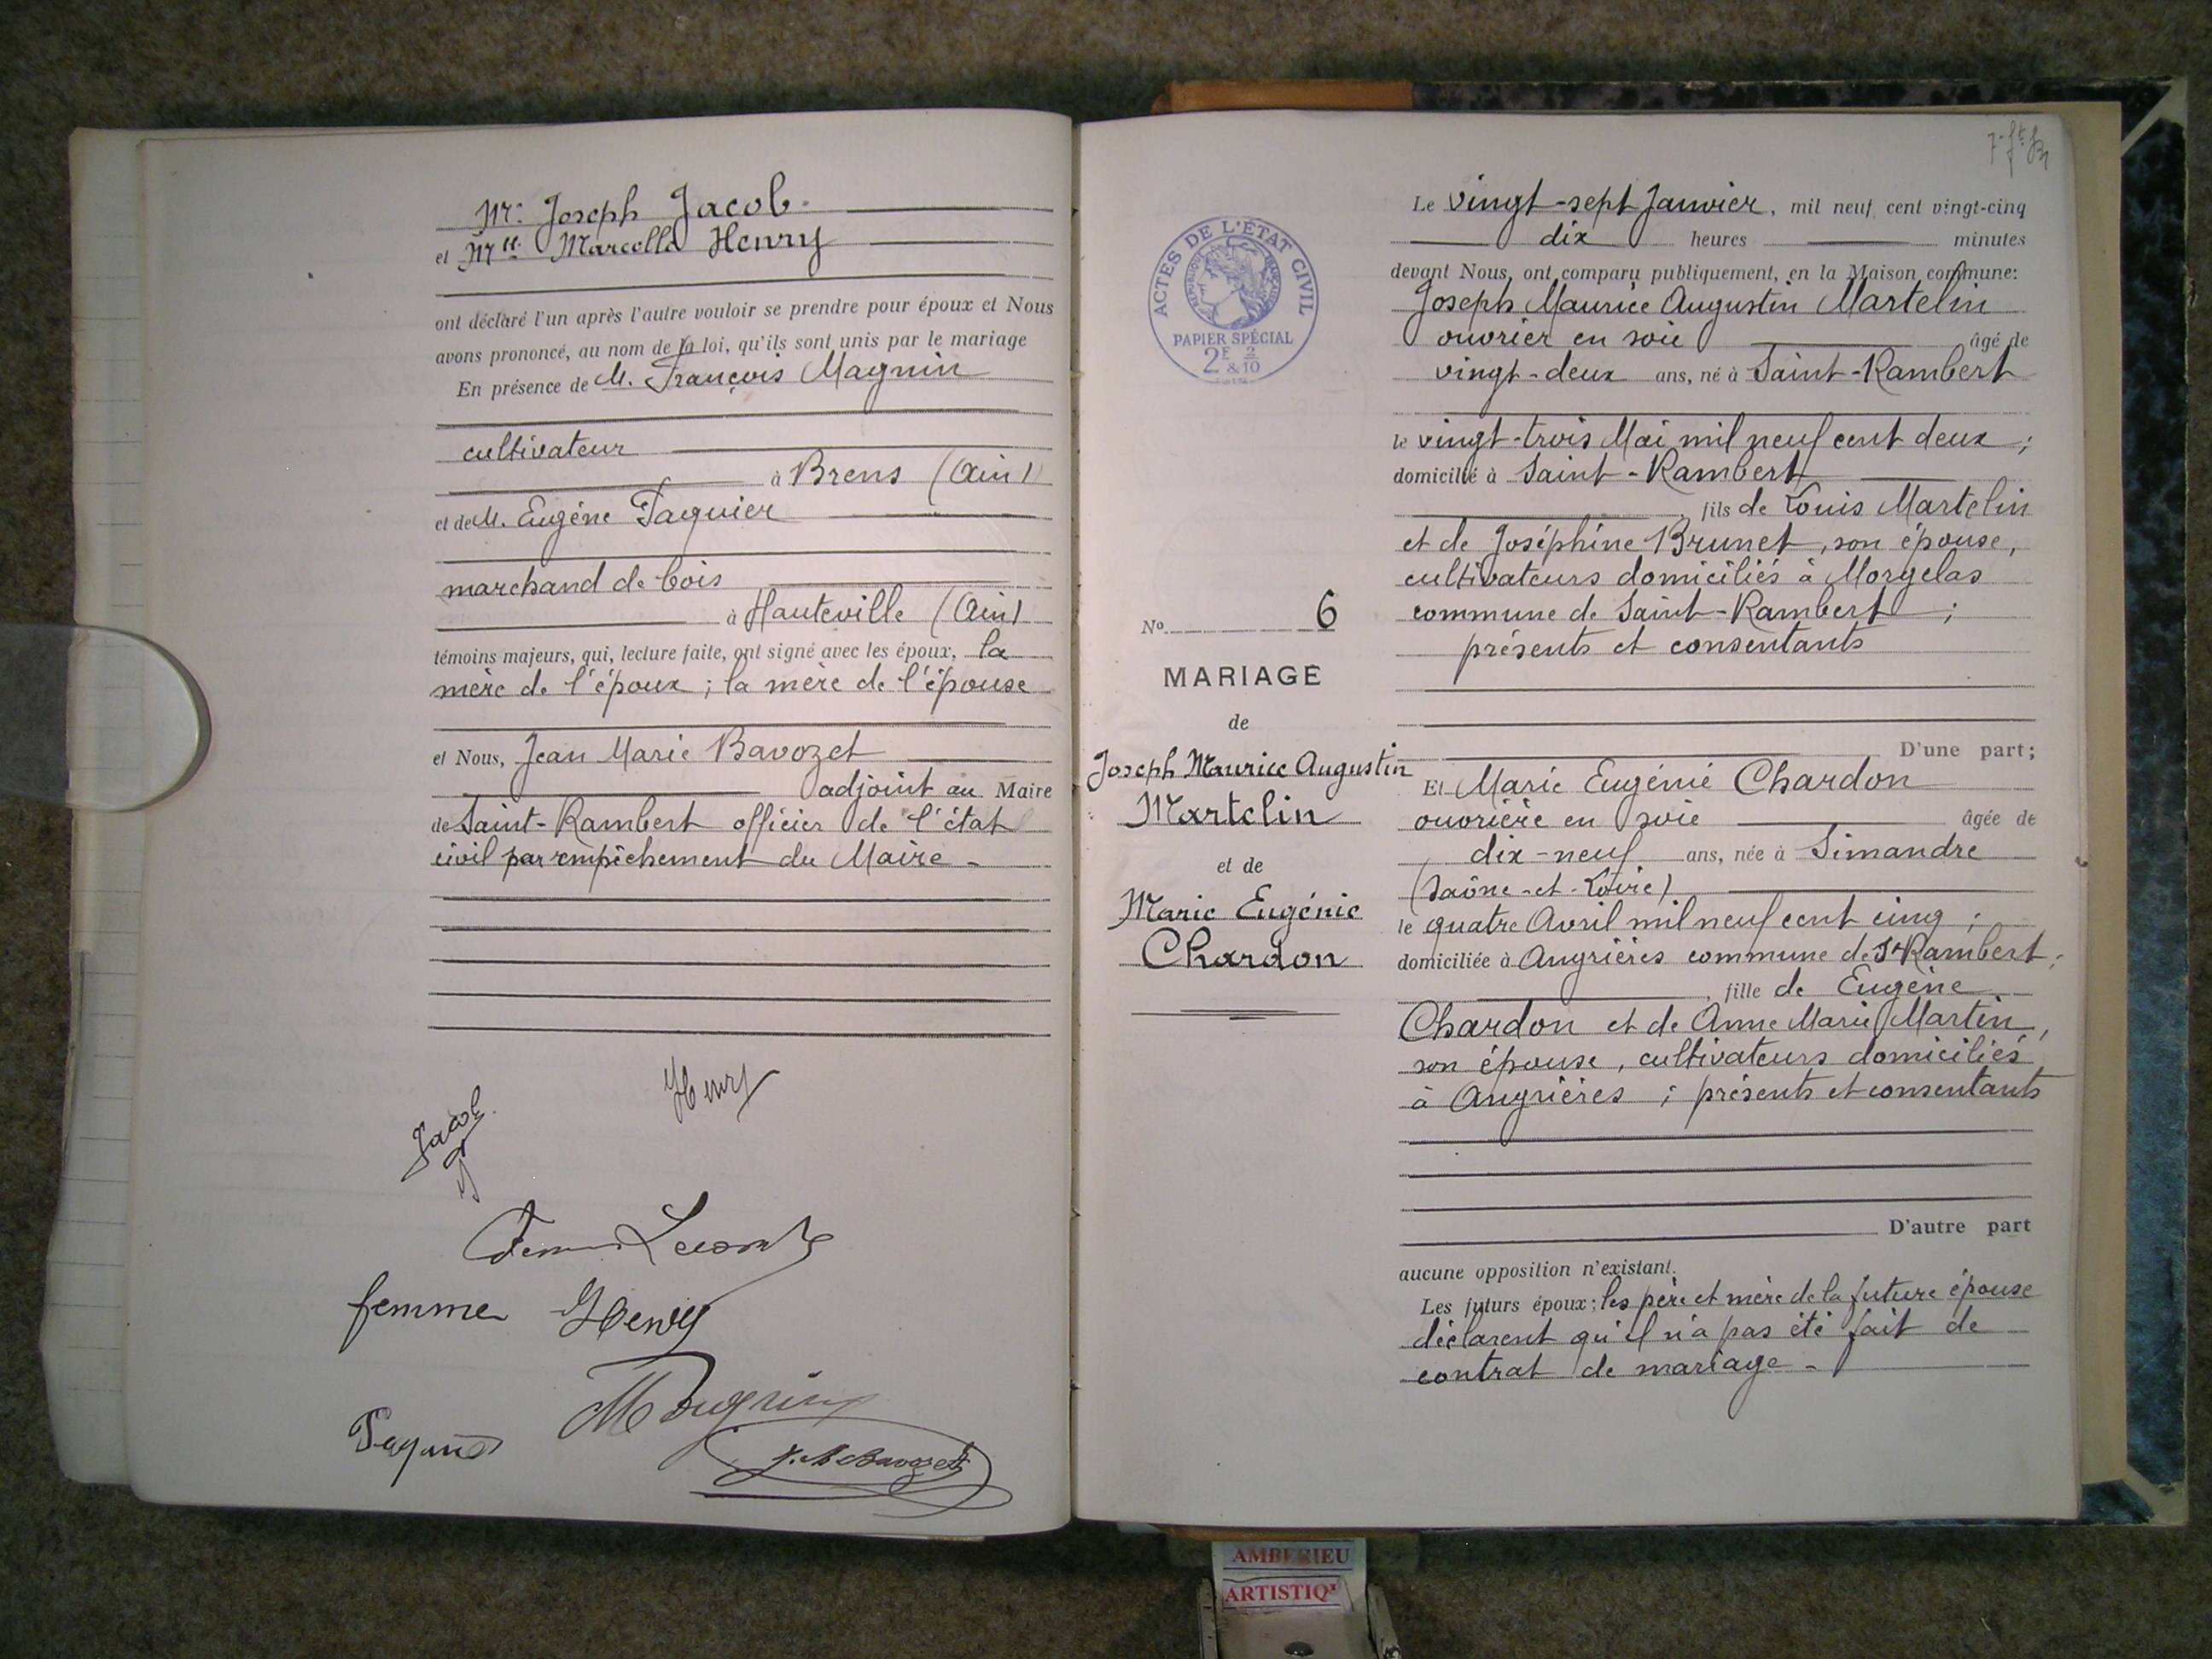 Mr. Joseph Jacob
et Mlle Marcelle Henry
ont déclaré l'un après l'autre vouloir se prendre pour époux et Nous
avons prononcé, au nom de la loi, qu'ils sont unis par le mariage
En présence de M. François Magnin
cultivateur
à Brens (Ain)
et de M. Eugène Paquier
marchand de bois
à Hauteville (Ain)
témoins majeurs, qui, lecture faite, ont signé avec les époux, la
mère de l'époux ; la mère de l'épouse
et Nous, Jean Marie Bavozet
adjoint au Maire
de Saint-Rambert officier de l'état
civil par empêchement du Maire -
Jacob
Henry
femme Henry
Magnin
J. M Bavozet
ACTES DE L'ÉTAT CIVIL
RÉPUBLIQUE FRANÇAISE
PAPIER SPÉCIAL
2F & 2/10
No 6
MARIAGE
de
Joseph Maurice Augustin
Martelin
et de
Marie Eugénie
Chardon
Le vingt-sept Janvier, mil neuf cent vingt-cinq
dix heures minutes
devant Nous, ont comparu publiquement, en la Maison commune:
Joseph Maurice Augustin Martelin
ouvrier en soie âgé de
vingt-deux ans, né à Saint-Rambert
le vingt-trois Mai mil neuf cent deux ;
domicilié à Saint-Rambert
, fils de Louis Martelin
et de Joséphine Brunet, son épouse,
cultivateurs domiciliés à Morgelas
commune de Saint-Rambert ;
présents et consentants
D'une part;
Et Marie Eugénie Chardon
ouvrière en soie âgée de
dix-neuf ans, née à Simandre
(Saône-et-Loire)
le quatre Avril mil neuf cent cinq ;
domiciliée à Angrières commune de St Rambert ;
, fille de Eugène
Chardon et de Anne Marie Martin,
son épouse, cultivateurs domiciliés
à Angrières ; présents et consentants
D'autre part
aucune opposition n'existant.
Les futurs époux ; les père et mère de la future épouse
déclarent qu'il n'a pas été fait de
contrat de mariage -
AMBERIEU
ARTISTIQx